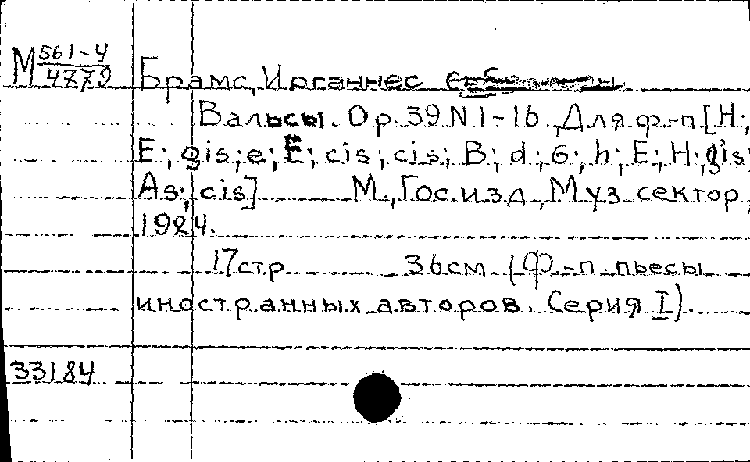 М 561-4
4779
Брамс, Иоганнес
Вальсы. Ор. 39 N 1-16. Для ф-п [H;
E; gis; e; E; cis; cis; B; d; G; h; E; H; gis;
As; cis] М., Гос. изд., Муз. сектор,
1924.
17 стр 36 см (Ф-п. пьесы
иностранных авторов. Серия I).
33184